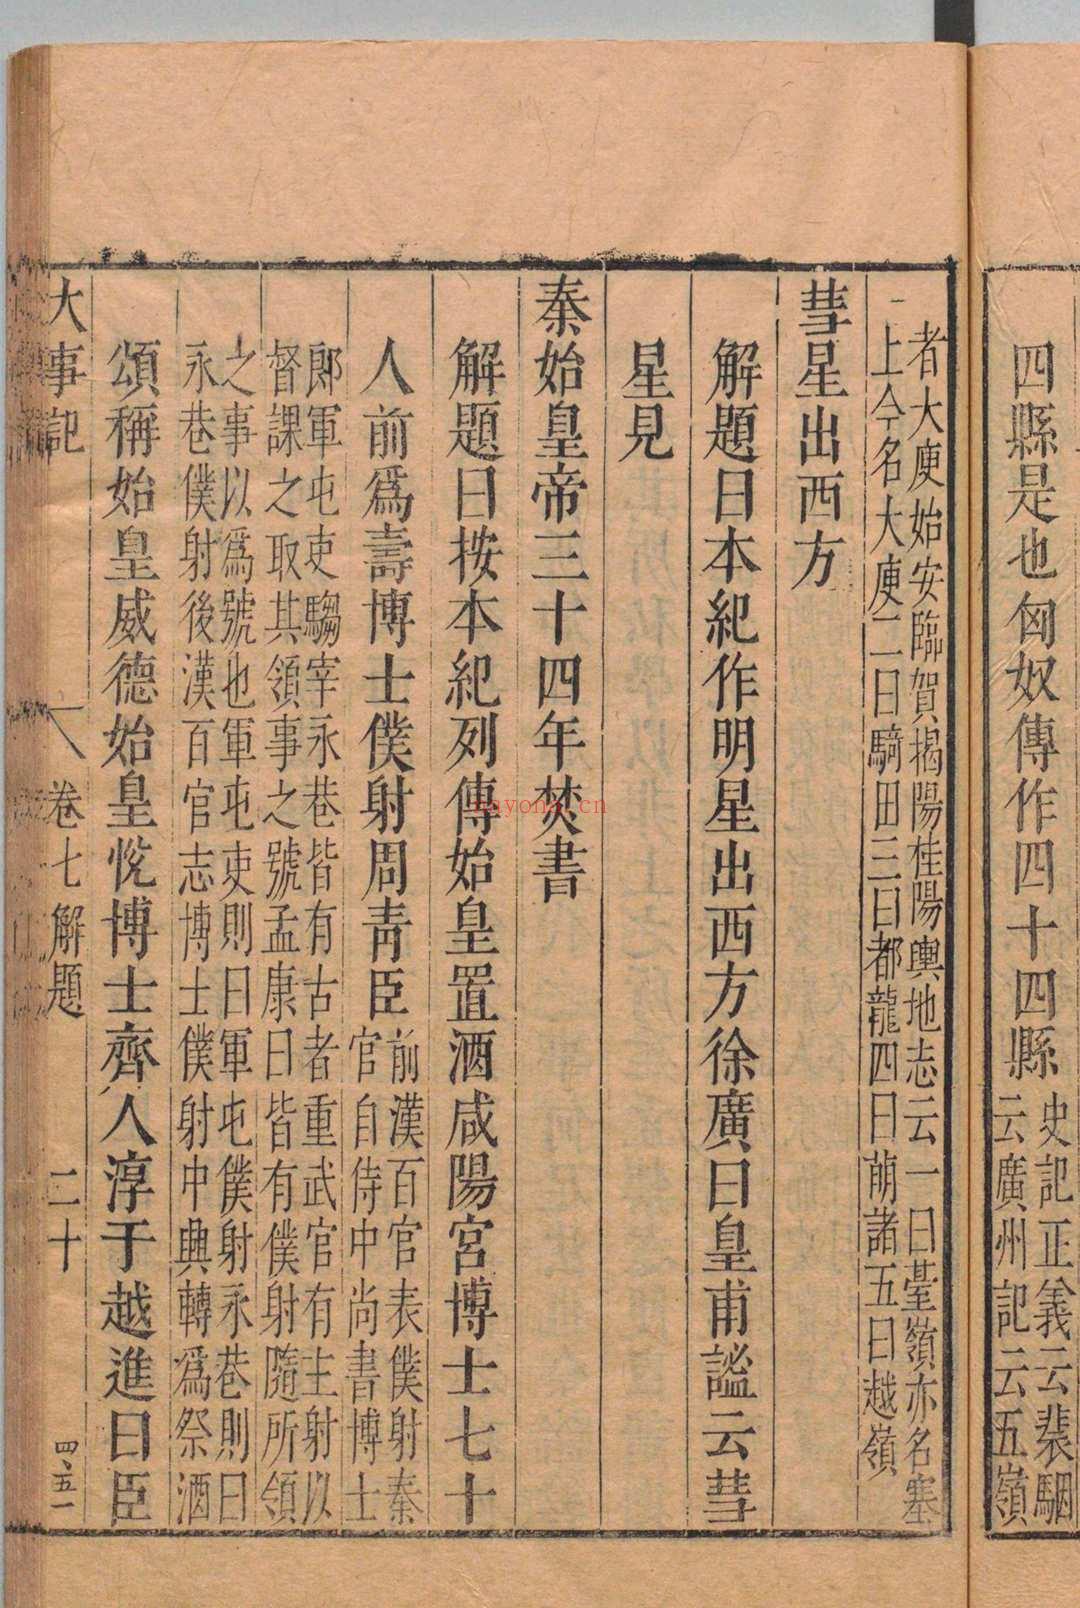 四縣是也匈奴傳作四十四縣
史記正義云裴駰
云廣州記云五嶺
者大庾始安臨賀揭陽桂陽輿地志云一曰臺嶺亦名塞
上今名大庾二曰騎田三曰都龍四曰萠諸五曰越嶺
彗星出西方
解題曰本紀作明星出西方徐廣曰皇甫謐云彗
星見
秦始皇帝三十四年焚書
解題曰按本紀列傳始皇置酒咸陽宮博士七十
人前爲壽博士僕射周靑臣
前漢百官表僕射秦
官自侍中尚書博士
郎軍屯吏騶宰永巷皆有古者重武官有主射以
督課之取其領事之號孟康曰皆有僕射隨所領
之事以爲號也軍屯吏則曰軍屯僕射永巷則曰
永巷僕射後漢百官志博士僕射中興轉爲祭酒
頌稱始皇威德始皇悅博士齊人淳于越進曰臣
大事記 卷七解題 二十 四、五一
nayona.cn